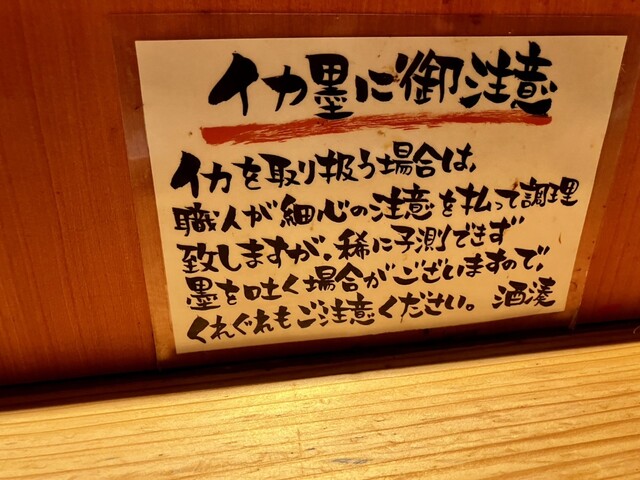 イカ墨に御注意
イカを取り扱う場合は、
職人が細心の注意を払って調理
致しますが、稀に予測できず
墨を吐く場合がございますので、
くれぐれもご注意ください。 酒湊